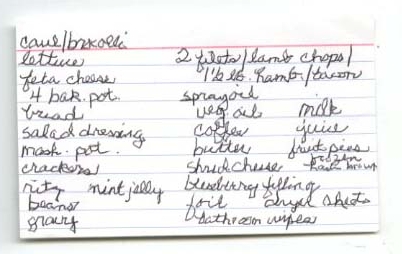 caul/broccolli
lettuce 2 filets/lamb chops/
feta cheese 1 1/2 lb. hamb/bacon
4 bak. pot. spray oil
bread veg oil milk
salad dressing coffee juice
mash. pot. butter fruit pies
crackers shred cheese frozen hash brown
ritz mint jelly blueberry filling
beans foil dryer sheets
gravy bathroom wipes